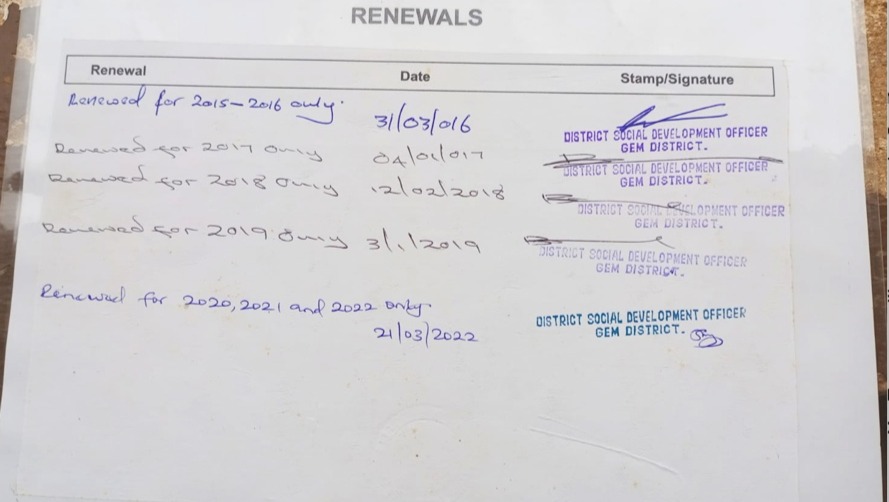 RENEWALS
Renewal Date Stamp/Signature
Renewed for 2015-2016 only. 31/03/016
DISTRICT SOCIAL DEVELOPMENT OFFICER
GEM DISTRICT.
Renewed for 2017 only 04/01/017
DISTRICT SOCIAL DEVELOPMENT OFFICER
GEM DISTRICT.
Renewed for 2018 only 12/02/2018
DISTRICT SOCIAL DEVELOPMENT OFFICER
GEM DISTRICT.
Renewed for 2019 only 3/1/2019
DISTRICT SOCIAL DEVELOPMENT OFFICER
GEM DISTRICT.
Renewed for 2020, 2021 and 2022 only.
21/03/2022
DISTRICT SOCIAL DEVELOPMENT OFFICER
GEM DISTRICT.